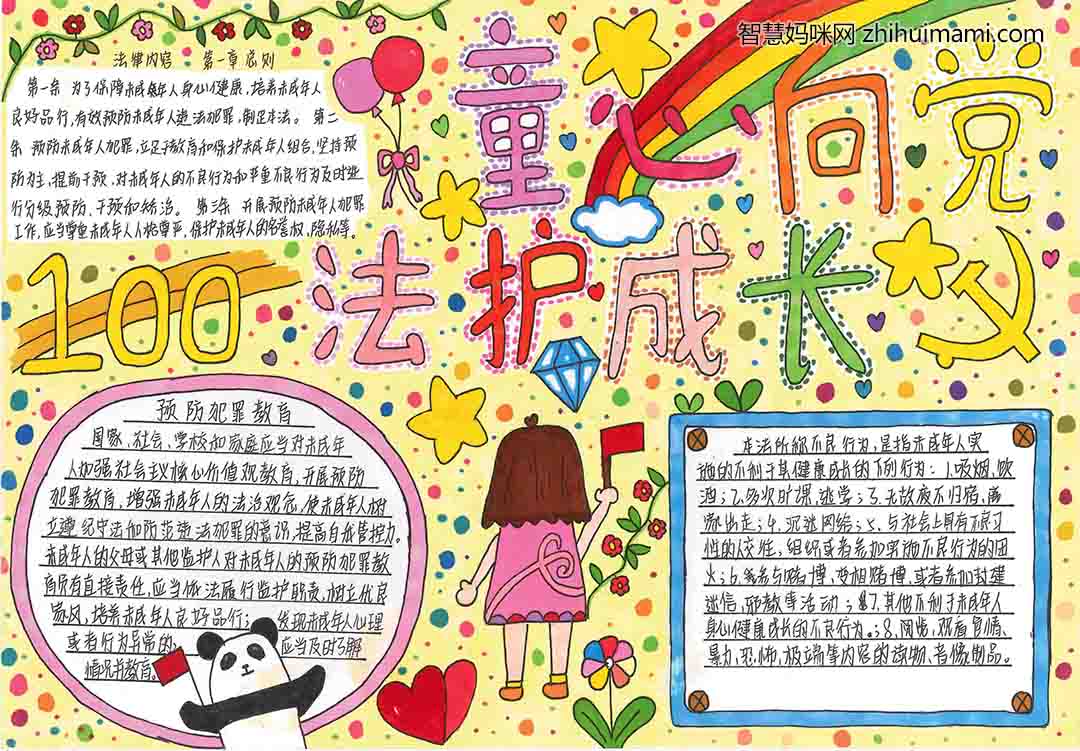 智慧妈咪网 zhihuimami.com
童心向党
法护成长
100
法律内容 第一章总则
第一条 为了保障未成年人身心健康,培养未成年人
良好品行,有效预防未成年人违法犯罪,制定本法。 第二
条 预防未成年人犯罪,立足于教育和保护未成年人相结合,坚持预
防为主,提前干预,对未成年人的不良行为和严重不良行为及时进
行分级预防、干预和矫治。 第三条 开展预防未成年人犯罪
工作,应当尊重未成年人人格尊严,保护未成年人的名誉权,隐私等。
预防犯罪教育
国家、社会、学校和家庭应当对未成年
人加强社会主义核心价值观教育,开展预防
犯罪教育,增强未成年人的法治观念,使未成年人树
立遵纪守法和防范违法犯罪的意识,提高自我管控力。
未成年人的父母或其他监护人对未成年人的预防犯罪教
育负有直接责任,应当依法履行监护职责,树立优良
家风,培养未成年人良好品行;发现未成年人心理
或者行为异常的 应当及时了解
情况并教育。
本法所称不良行为,是指未成年人实
施的不利于其健康成长的下列行为:1、吸烟、饮
酒;2、多次旷课、逃学;3、无故夜不归宿、离
家出走;4、沉迷网络;5、与社会上具有不良习
性的人交往,组织或者参加实施不良行为的团
伙;6、参与赌博、变相赌博、或者参加封建
迷信、邪教等活动;7、其他不利于未成年人
身心健康成长的不良行为。;8、阅览、观看色情、
暴力、恐怖、极端等内容的读物、音像制品。